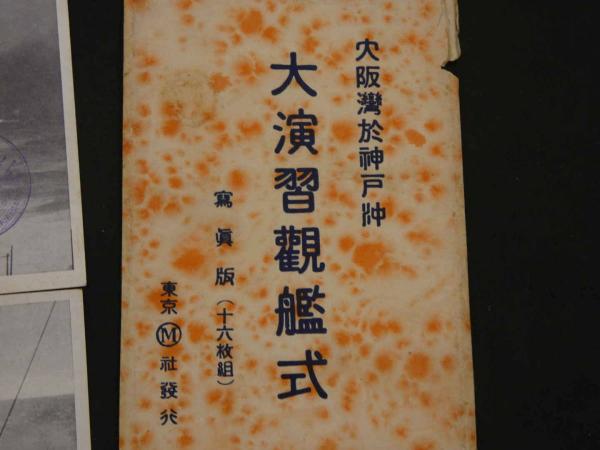 大阪灣於神戸沖
大演習觀艦式
寫眞版(十六枚組)
東京Ⓜ社發行